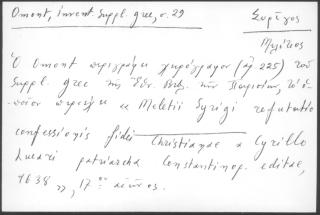 Omont, invent. Suppl. grec, σ. 29
Συρίγος
Μελέτιος
Ὁ Omont περιγράφει χειρόγραφον (ἀρ. 225) τοῦ
Suppl. grec τῆς Ἐθν. Βιβλ. τῶν Παρισίων, τὸ ὁ-
ποῖον περιέχει « Meletii Syrigi refutatio
confessionis fidei Christianae a Cyrillo
Lucari patriarcha Constantinop. editae,
1638 », 17ου αἰῶνος.